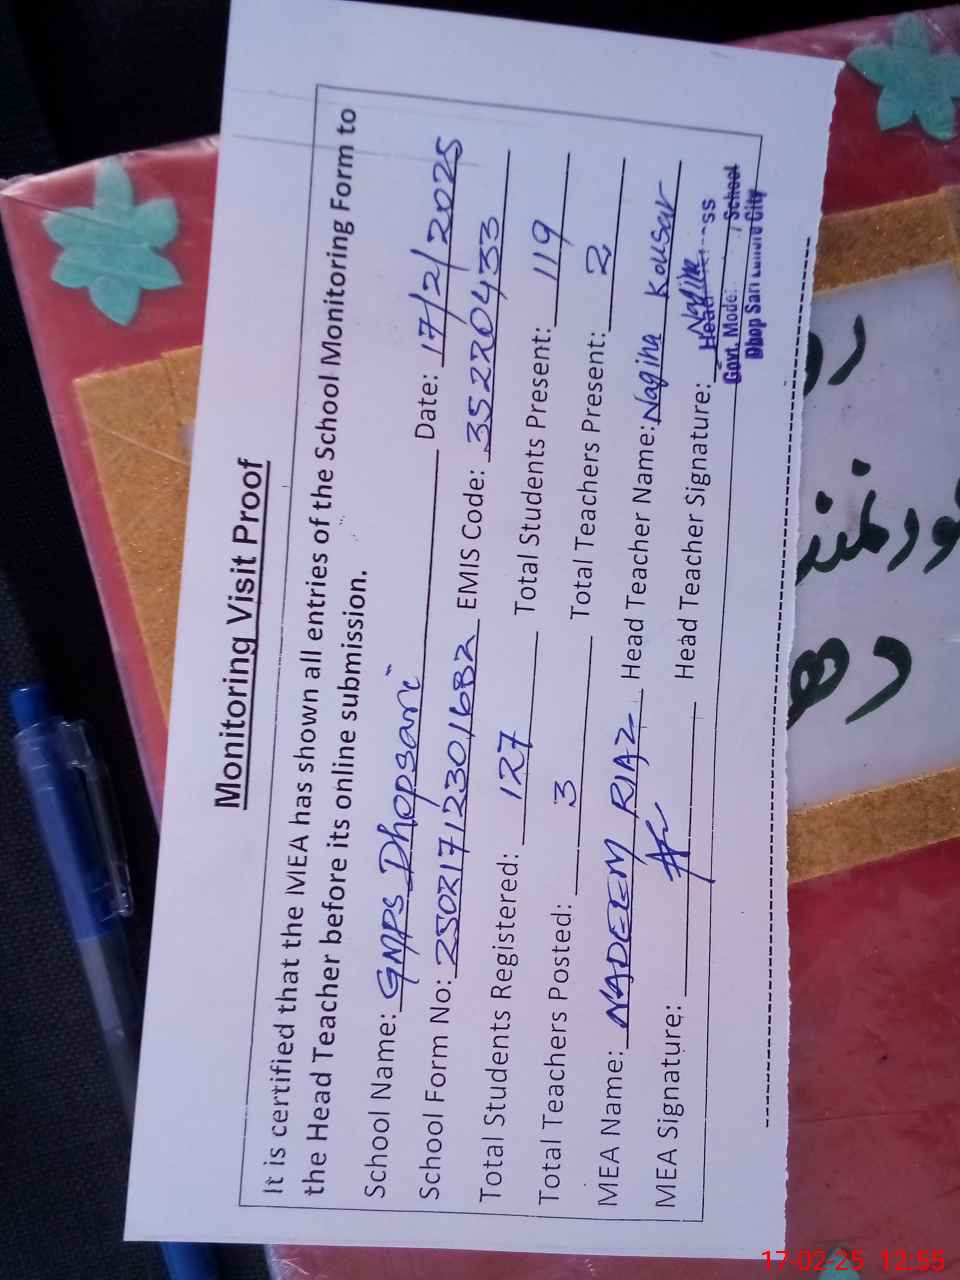 Monitoring Visit Proof
It is certified that the MEA has shown all entries of the School Monitoring Form to
the Head Teacher before its online submission.
School Name: GMPS Dhopsari Date: 17/2/2025
School Form No: 25021712301682 EMIS Code: 35220433
Total Students Registered: 127 Total Students Present: 119
Total Teachers Posted: 3 Total Teachers Present: 2
MEA Name: NADEEM RIAZ Head Teacher Name: Nagina Kousar
MEA Signature: Head Teacher Signature:
Govt. School
Dhop Sari City
17-02-25 12:55